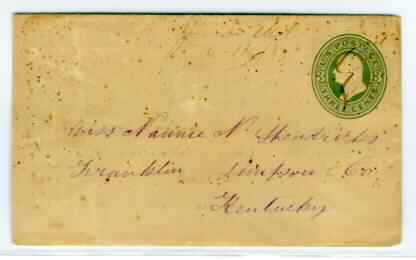 U.S. POSTAGE
3 3
THREE CENTS
Miss Nannie N. Hendricks
Franklin Simpson Co.
Kentucky